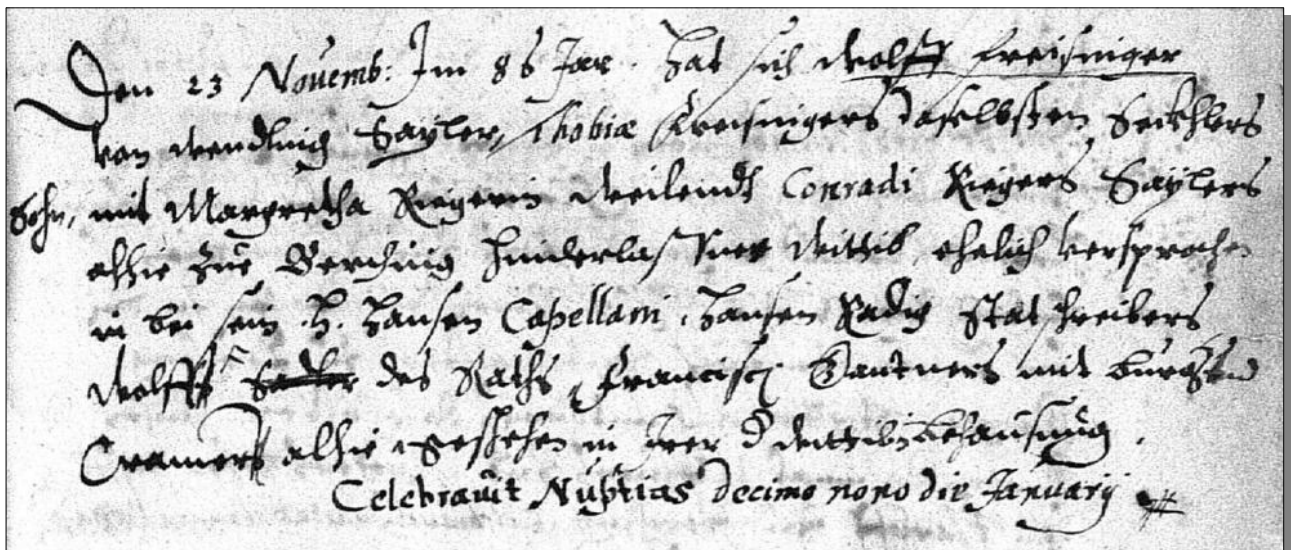 Den 23 Novemb: Im 86 Jar. hat sich Wolff Freisinger
von Wendling Sayler, Thobiæ Freisingers daselbsten Seckhlers
Sohn, mit Margretha Riegerin weilendt Conradi Riegers Saylers
alhie zue Berching hinderlassner Wittib ehelich versprochen
in bei sein .H. Hansen Capellani, Hansen Radig Statschreibers
Wolff des Raths, Francisci Gantners mit burgers und
Cramers alhie, geschehen in Irer d Wittib behausung.
Celebravit Nuptias decimo nono die Januarij